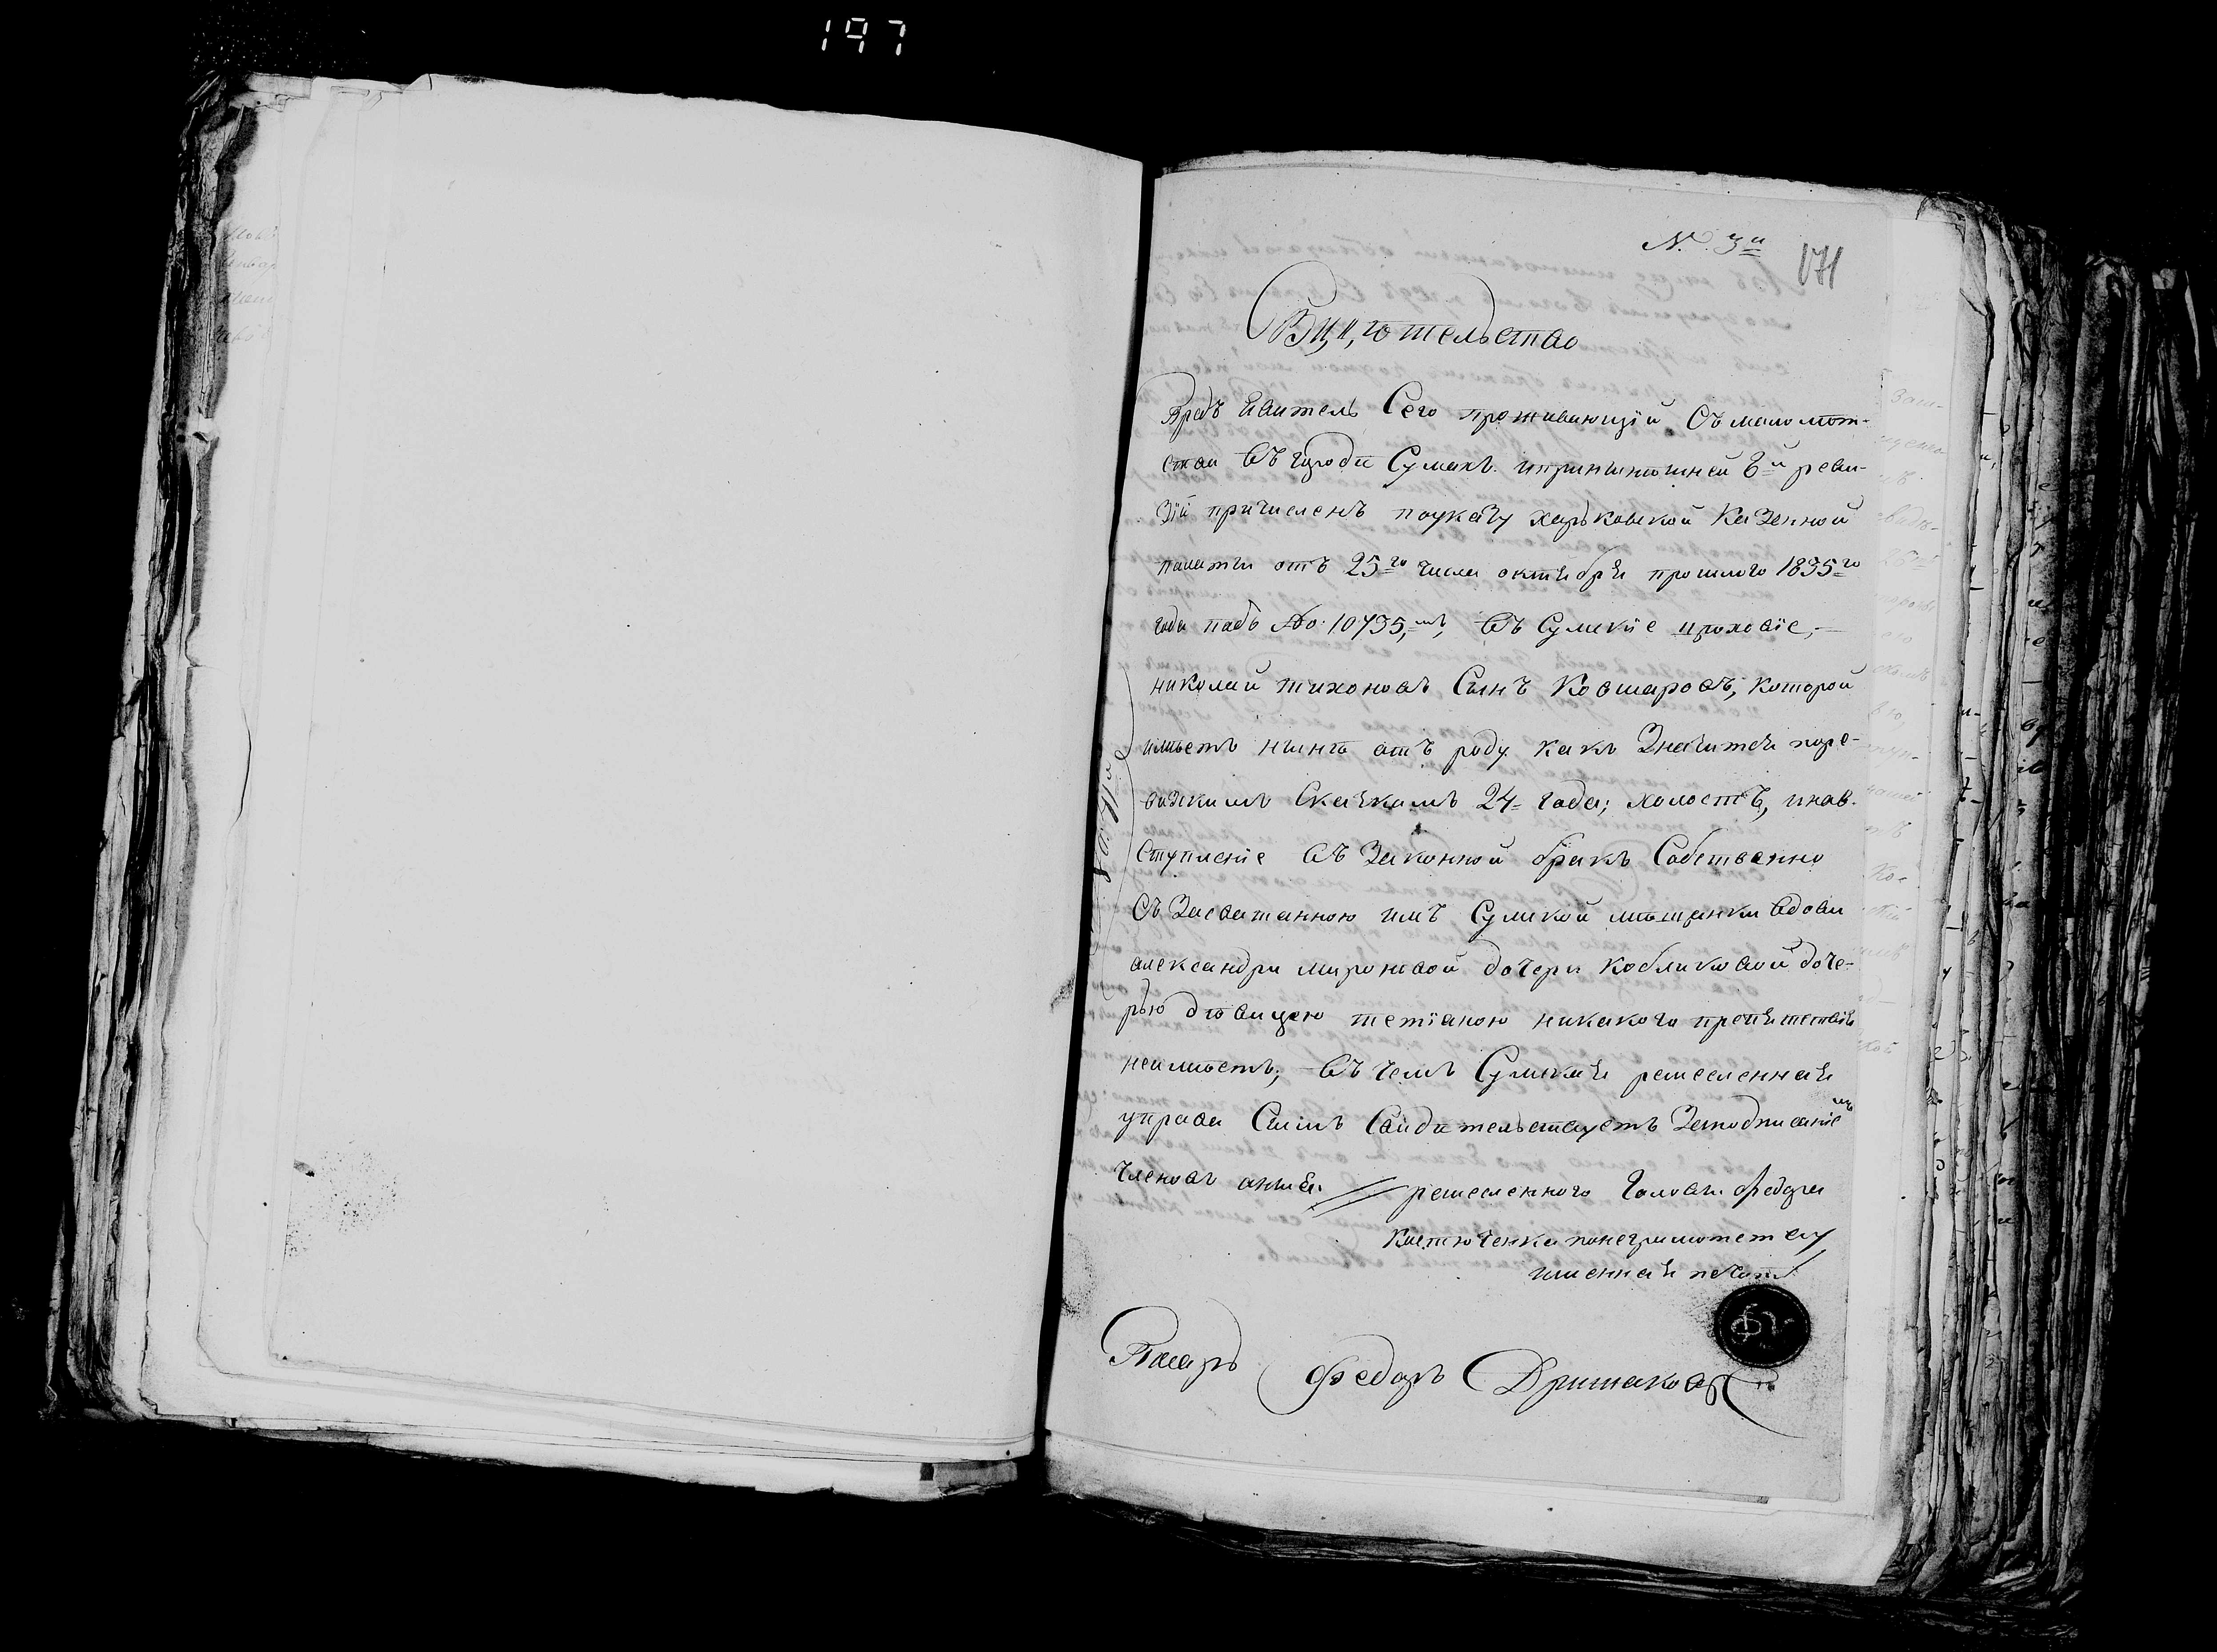 197
N. 3й
171
Свидѣтельство
Предъявитель Сего проживающїй Съ малолѣт-
ства Въ городѣ Сумахъ. инринынѣшней 8й реви-
зїи причисленъ поуказу харьковской Казенной
палаты отъ 25го числа октября прошлого 1835го
года подъ No: 10795,мъ, Въ Сумскїе цеховїе,—
николай тихоновъ Сынъ Ковшаровъ, которой
имѣетъ нынѣ отъ роду какъ Значится поре-
визкимъ Скаскамъ 24- года; холостъ, инав-
ступленїе Въ Законной бракъ Собственно
Съ Засватанною имъ Сумской мѣщанки Вдовы
александры мироновой дочери Кобликовой доче-
рью дѣвицею тетїаною никакого препятствїя
неимѣетъ; Въ чемъ Сумская ремесленная
управа Симъ Свидѣтельствуетъ Заподписанїемъ
Членовъ оныя. // ремесленного Головы федора
Костюченка понеграмотству
именная печать
Писарь Федоръ